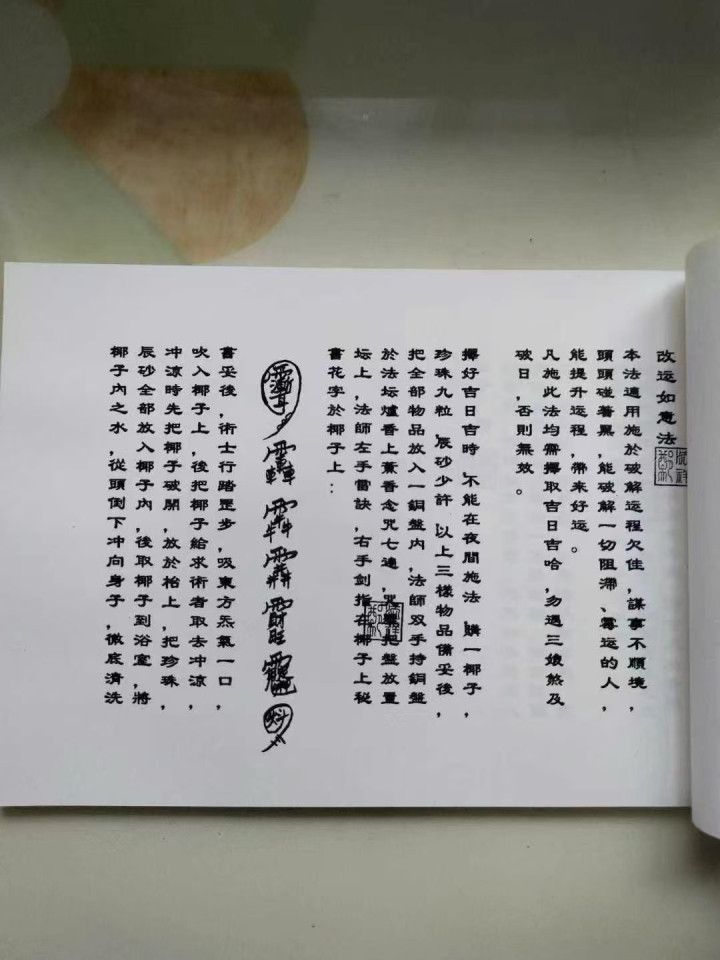 改运如意法
本法適用施於破解运程欠佳，謀事不順境，
頭頭碰著黑，能破解一切阻滞、霉运的人，
能提升运程，帶来好运。
凡施此法均需擇取吉日吉哈，勿遇三娘煞及
破日，否則無效。
擇好吉日吉時，不能在夜間施法，購一椰子，
珍珠九粒，辰砂少許，以上三樣物品備妥後，
把全部物品放入一銅盤內，法師双手持銅盤
於法坛爐香上薰香念咒七遍，咒畢把盤放置
坛上，法師左手雷訣，右手劍指在椰子上秘
書花字於椰子上：
書妥後，術士行踏罡步，吸東方炁氣一口，
吹入椰子上，後把椰子給求術者取去冲涼，
冲涼時先把椰子破開，放於枱上，把珍珠，
辰砂全部放入椰子內，後取椰子到浴室，將
椰子內之水，從頭倒下冲向身子，徹底清洗